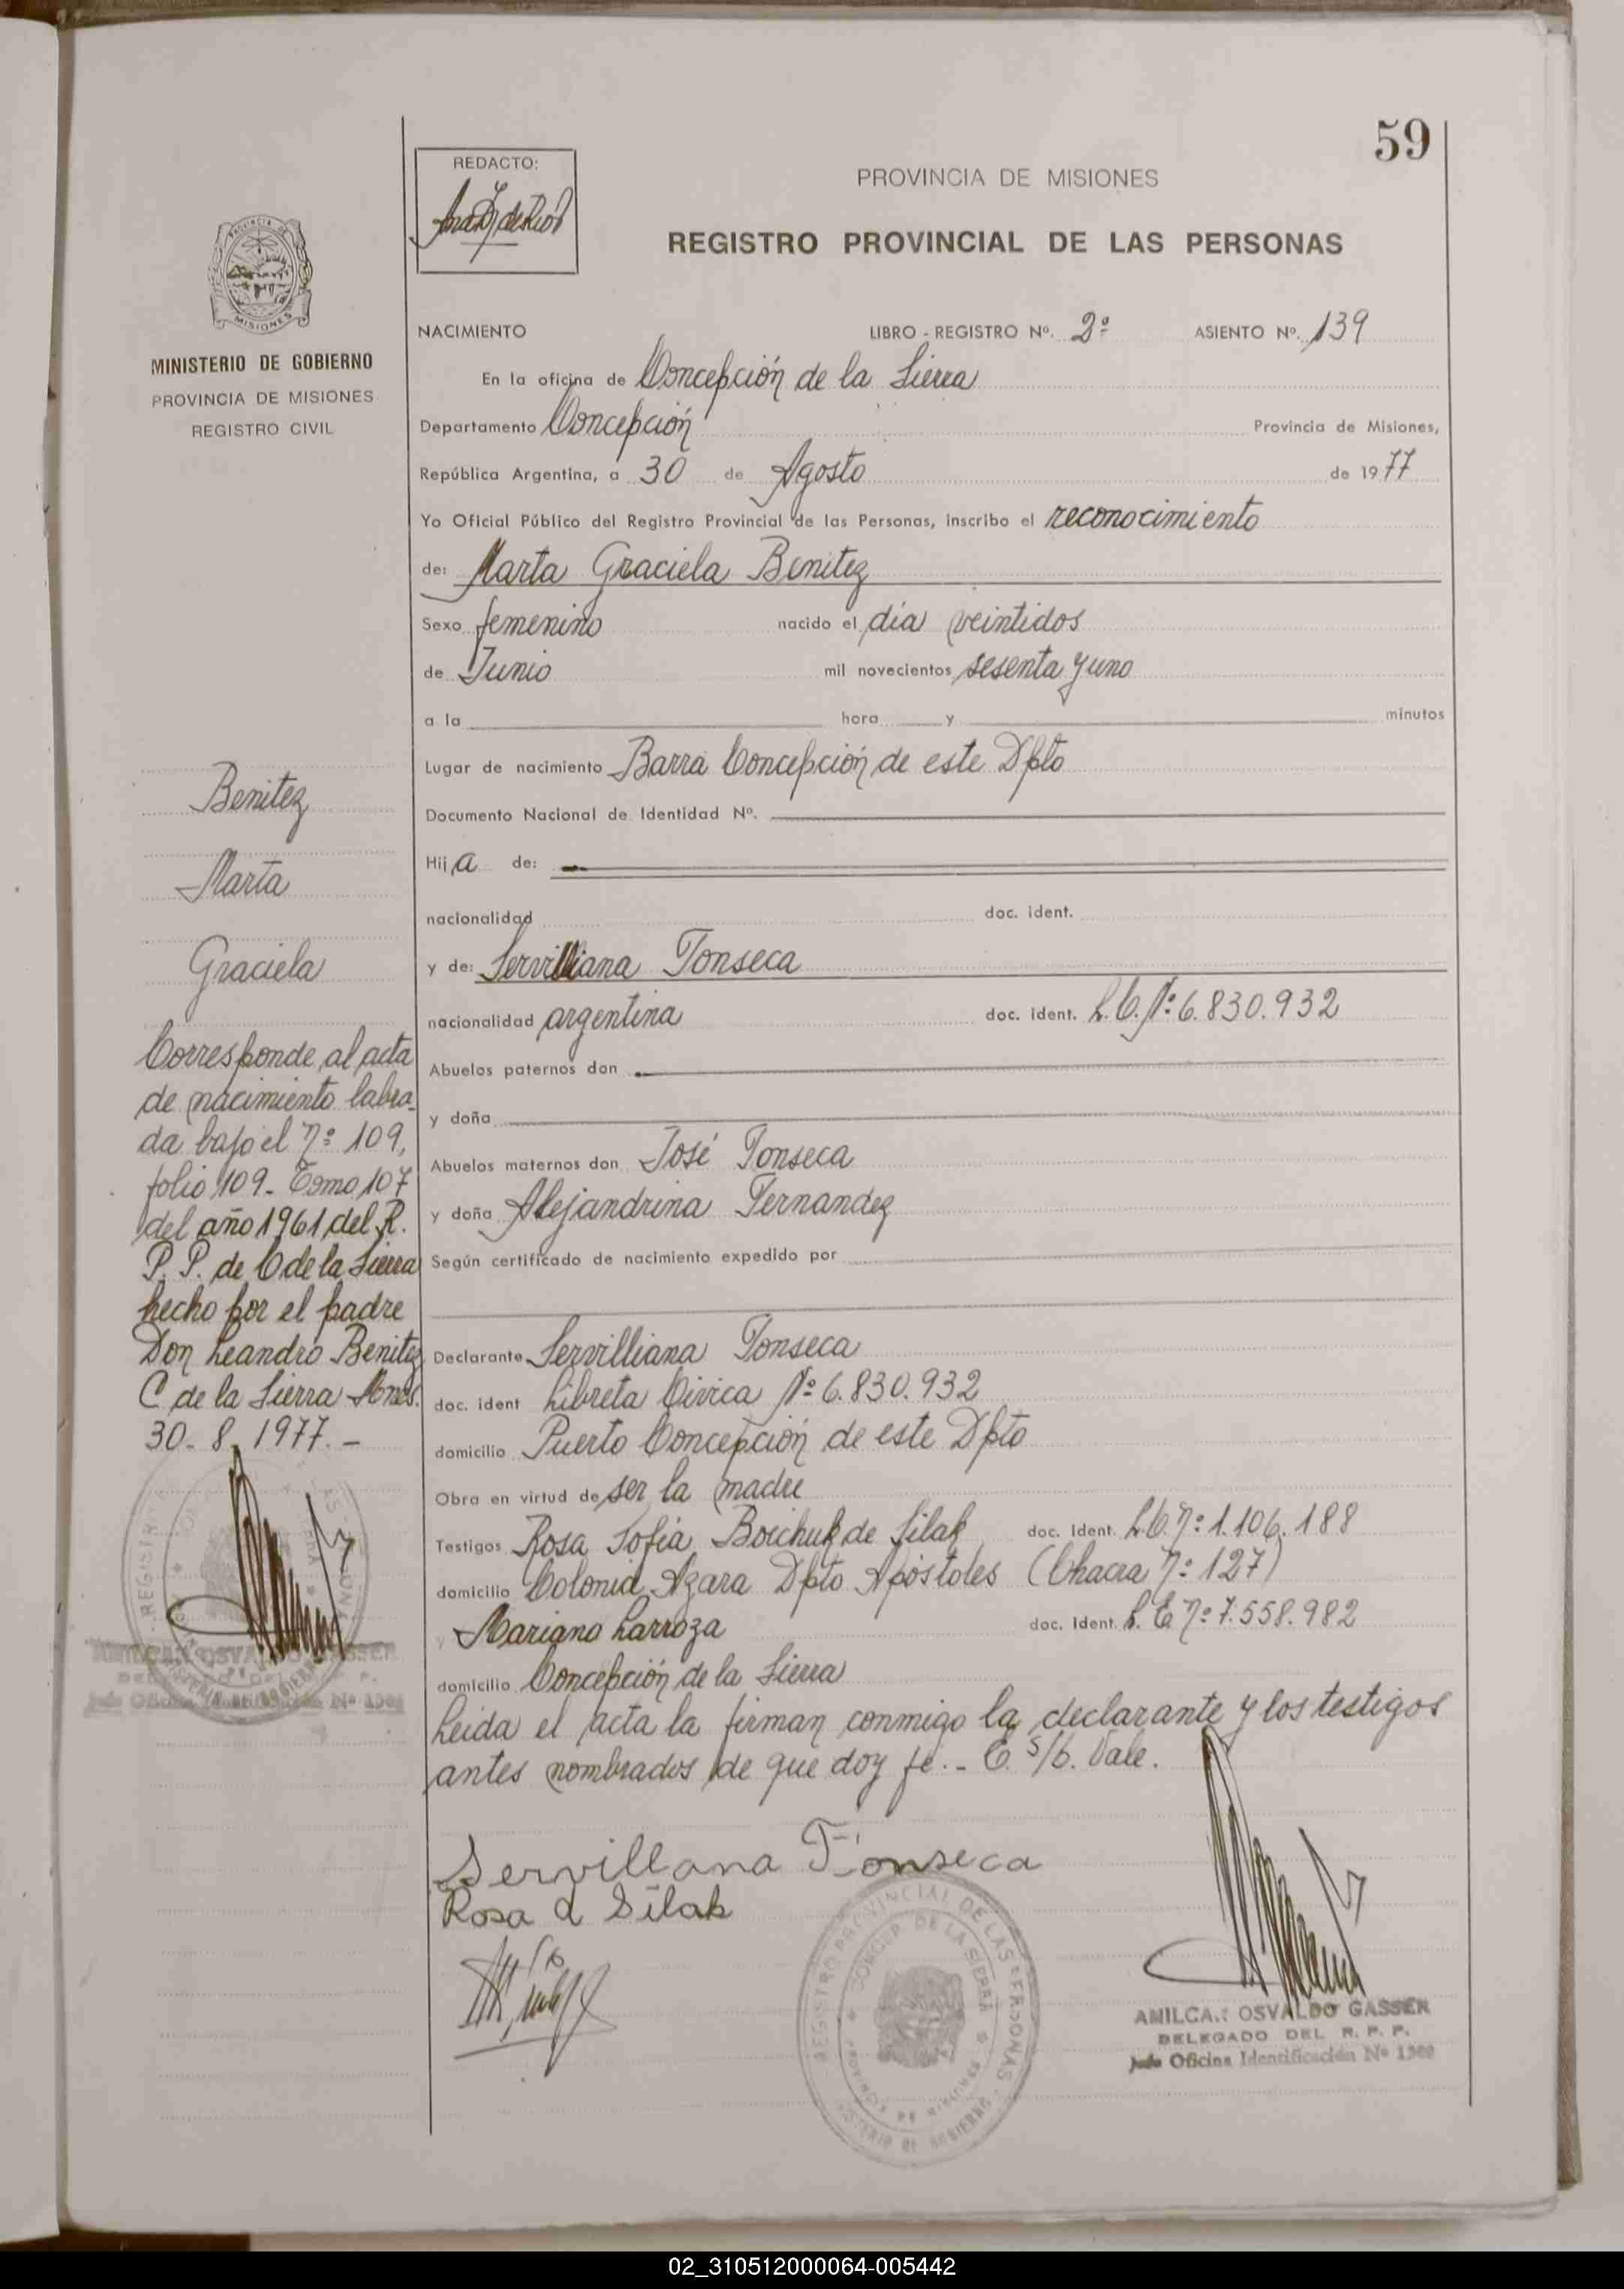 59
REDACTO:
PROVINCIA DE MISIONES
REGISTRO PROVINCIAL DE LAS PERSONAS
MISIONES
MINISTERIO DE GOBIERNO
PROVINCIA DE MISIONES
REGISTRO CIVIL
NACIMIENTO LIBRO - REGISTRO Nº. 2º ASIENTO Nº. 139
En la oficina de Concepción de la Sierra
Departamento Concepción Provincia de Misiones,
República Argentina, a 30 de Agosto de 1977
Yo Oficial Público del Registro Provincial de las Personas, inscribo el reconocimiento
de: Marta Graciela Benitez
Sexo femenino nacido el día veintidos
de Junio mil novecientos sesenta y uno
a la hora y minutos
Lugar de nacimiento Barra Concepción de este Dpto
Documento Nacional de Identidad Nº.
Hija de:
nacionalidad doc. ident.
y de: Servilliana Fonseca
nacionalidad argentina doc. ident. L.C. Nº 6.830.932
Abuelos paternos don
y doña
Abuelos maternos don José Fonseca
y doña Alejandrina Fernandez
Según certificado de nacimiento expedido por
Declarante Servilliana Fonseca
doc. ident Libreta Civica Nº 6.830.932
domicilio Puerto Concepción de este Dpto
Obra en virtud de ser la madre
Testigos Rosa Sofia Boichuk de Silak doc. Ident. L.C. nº 1.106.188
domicilio Colonia Azara Dpto Apóstoles (Chacra nº 127)
y Mariano Larroza doc. Ident. L.E. nº 7.558.982
domicilio Concepción de la Sierra
Leida el acta la firman conmigo la declarante y los testigos
antes nombrados de que doy fe.- E. s/b. Vale.
Benitez
Marta
Graciela
Corresponde al acta
de nacimiento labra-
da bajo el nº 109,
folio 109- Tomo 107
del año 1961 del R.
P. P. de C de la Sierra
hecho por el padre
Don Leandro Benitez
C de la Sierra Mnes.
30-8-1977.-
Servillana Fonseca
Rosa d Silak
REGISTRO PROVINCIAL DE LAS PERSONAS
CONCEP. DE LA SIERRA
PROVINCIA DE MISIONES
MINISTERIO DE GOBIERNO
AMILCAR OSVALDO GASSER
DELEGADO DEL R. P. P.
Jefe Oficina Identificación Nº
AMILCAR OSVALDO GASSER
02_310512000064-005442